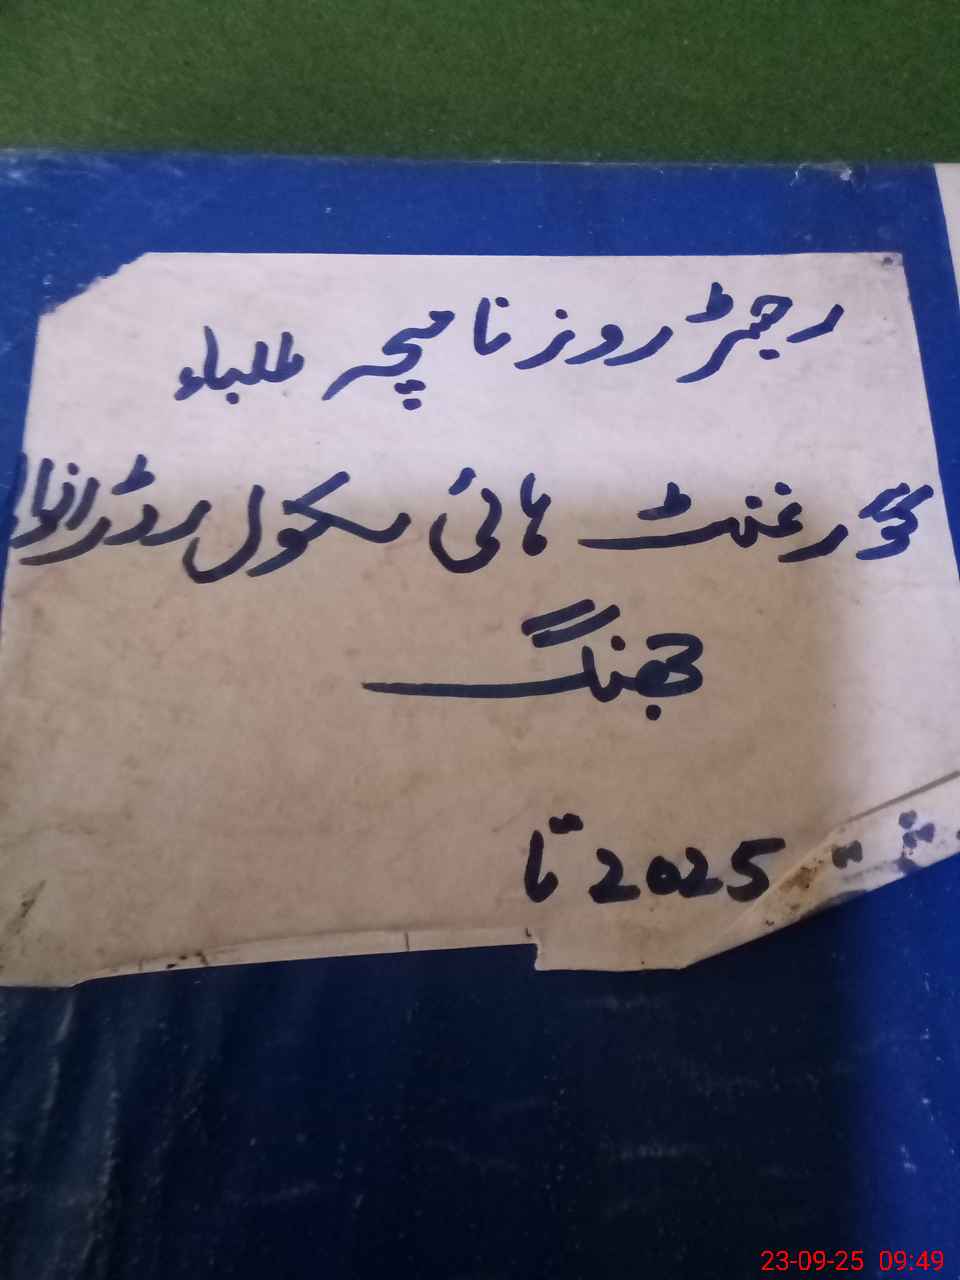 رجسٹر روزنامچہ طلباء
گورنمنٹ ہائی سکول
جھنگ
2025 تا
23-09-25 09:49